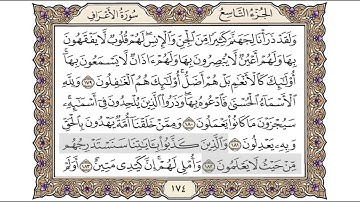 الجزء التاسع
سورة الأعراف
ولقد ذرأنا لجهنم كثيرا من الجن والإنس لهم قلوب لا يفقهون
بها ولهم أعين لا يبصرون بها ولهم ءاذان لا يسمعون بها
أولئك كالأنعم بل هم أضل أولئك هم الغفلون ١٧٩ ولله
الأسماء الحسنى فادعوه بها وذروا الذين يلحدون في أسمئه
سيجزون ما كانوا يعملون ١٨٠ وممن خلقنا أمة يهدون بالحق
وبه يعدلون ١٨١ والذين كذبوا بءايتنا سنستدرجهم
من حيث لا يعلمون ١٨٢ وأملي لهم إن كيدي متين ١٨٣ أولم
١٧٤